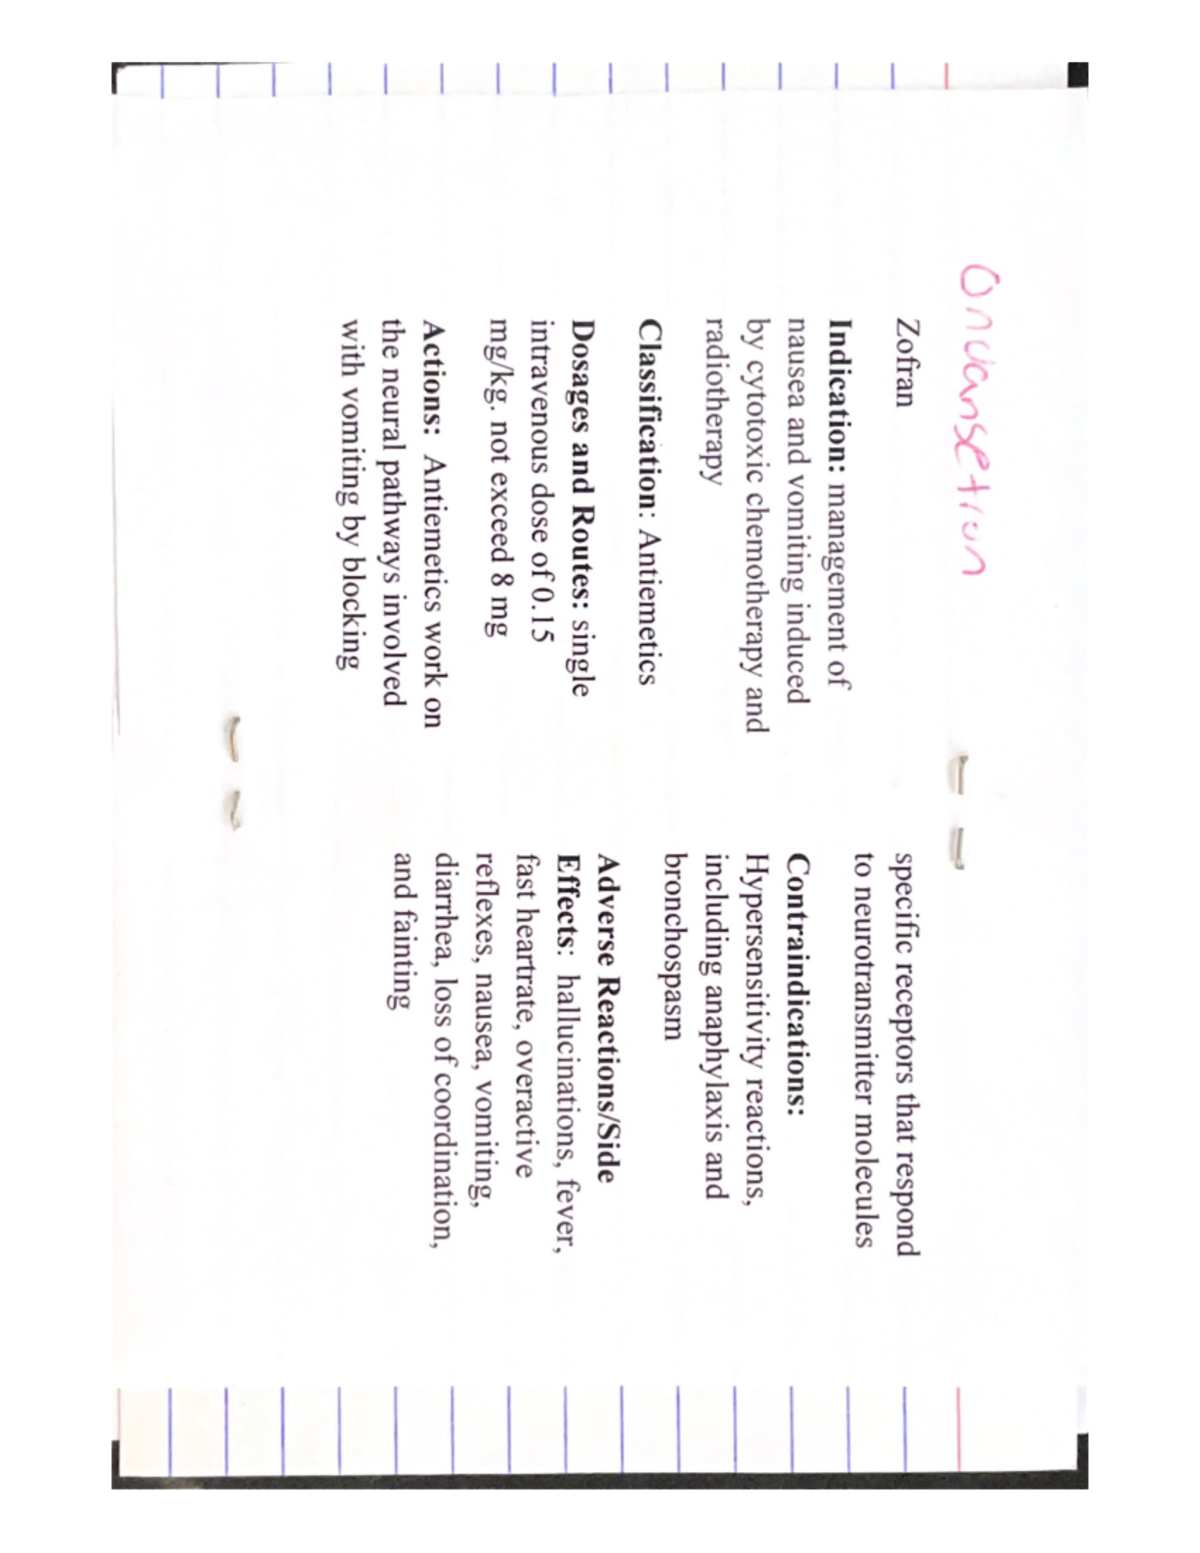 Ondansetron
Zofran
Indication: management of
nausea and vomiting induced
by cytotoxic chemotherapy and
radiotherapy
Classification: Antiemetics
Dosages and Routes: single
intravenous dose of 0.15
mg/kg. not exceed 8 mg
Actions: Antiemetics work on
the neural pathways involved
with vomiting by blocking
specific receptors that respond
to neurotransmitter molecules
Contraindications:
Hypersensitivity reactions,
including anaphylaxis and
bronchospasm
Adverse Reactions/Side
Effects: hallucinations, fever,
fast heartrate, overactive
reflexes, nausea, vomiting,
diarrhea, loss of coordination,
and fainting